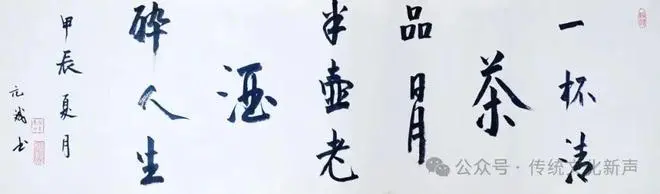 一杯清
茶
品日月
半壶老
酒
醉人生
甲辰夏月
元城书
公众号·传统文化新声